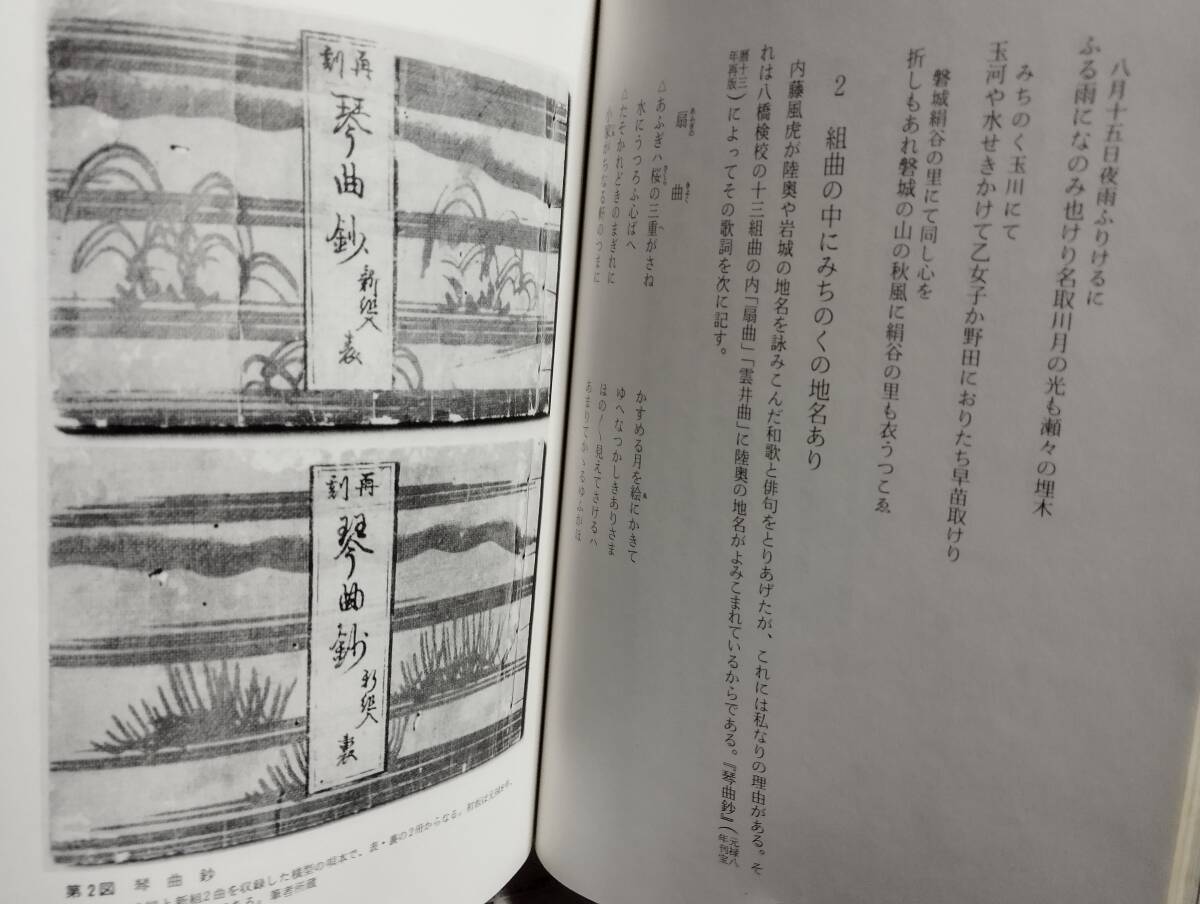 八月十五日夜雨ふりけるに
ふる雨になのみ也けり名取川月の光も瀬々の埋木
みちのく玉川にて
玉河や水せきかけて乙女子か野田におりたち早苗取けり
磐城絹谷の里にて同し心を
折しもあれ磐城の山の秋風に絹谷の里も衣うつこゑ
2 組曲の中にみちのくの地名あり
内藤風虎が陸奥や岩城の地名を詠みこんだ和歌と俳句をとりあげたが、これには私なりの理由がある。そ
れは八橋検校の十三組曲の内「扇曲」「雲井曲」に陸奥の地名がよみこまれているからである。『琴曲鈔』(元禄八年刊宝
暦十三年再版)によってその歌詞を次に記す。
扇曲
△あふぎハ桜の三重がさね
かすめる月を絵にかきて
水にうつろふ心ばへ
ゆへなつかしきありさま
△たそかれどきのまぎれに
ほの〱見えてさけるハ
小家がちなる軒のつまに
あまりてかゝるゆふがほ
再刻 琴曲鈔 新組入 表
再刻 琴曲鈔 新組入 裏
第2図 琴曲鈔
新組2曲を収録した横型の唄本で、表・裏の2冊からなる。初板は元禄8年、
ある。筆者所蔵